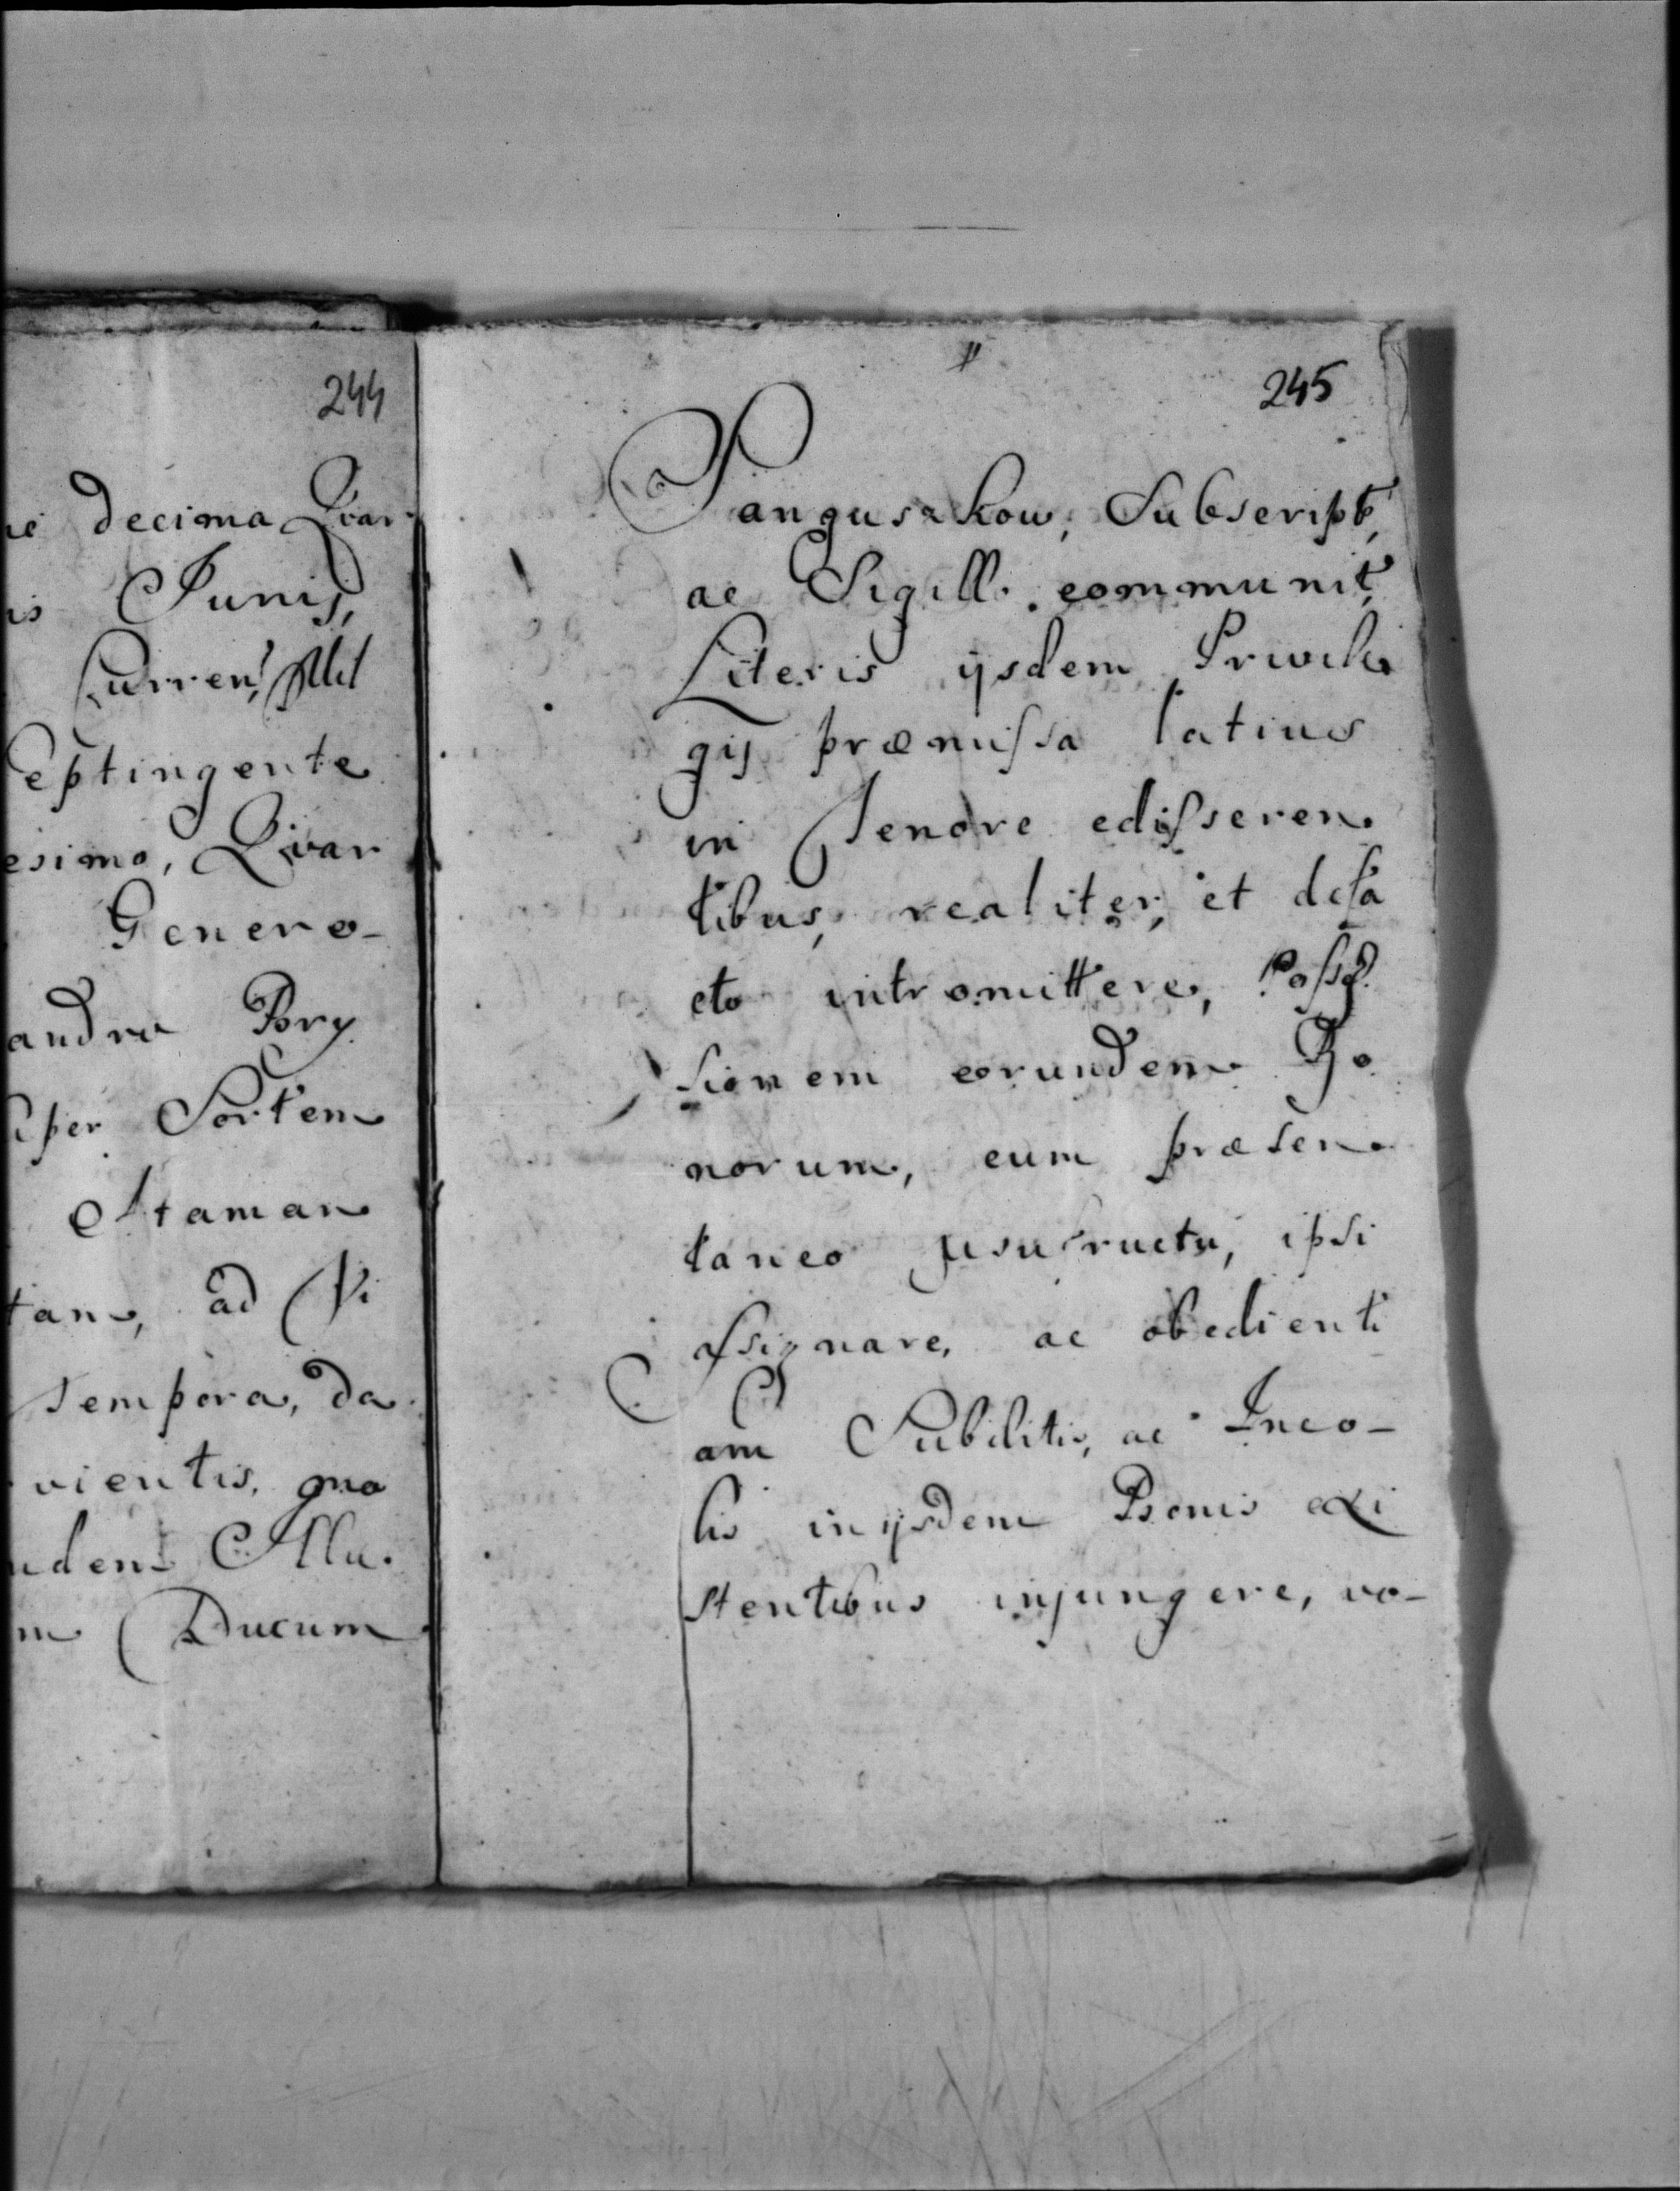 244
decima Quar
Junij,
Curren, Mil
eptingente
esimo, Quar
Genero-
andro Pory
per Sortem
Ataman
ad Vi
Tempora, da
vientis, quo
Illu.
Ducum
245
Sanguszkow, Subscript,
ac Sigill. communit,
Literis ijsdem Privile
gij præmissa latius
in Tenore edisseren.
tibus, realiter, et defa
cto intromittere, Posse
sionem eorundem Bo
norum, cum præsen.
taneo usufructu, ipsi
assignare, ac obedienti
am Subditis, ac Inco-
lis in ijsdem Bonis exi
stentibus injungere, vo-